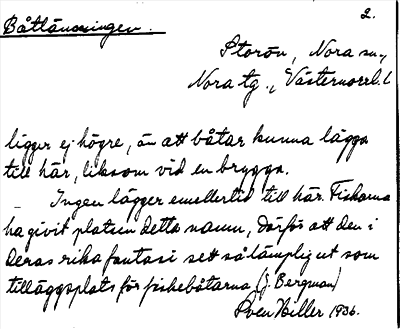 2.
Båtlänningen.
Storön, Nora sn.,
Nora tg., Västernorrl. l
ligger ej högre, än att båtar kunna lägga
till här, liksom vid en brygga.
Ingen lägger emellertid till här. Fiskarna
ha givit platsen detta namn, därför att den i
deras rika fantasi sett så lämplig ut som
tilläggsplats för fiskebåtarna (J. Bergman)
Sven Hiller 1936.